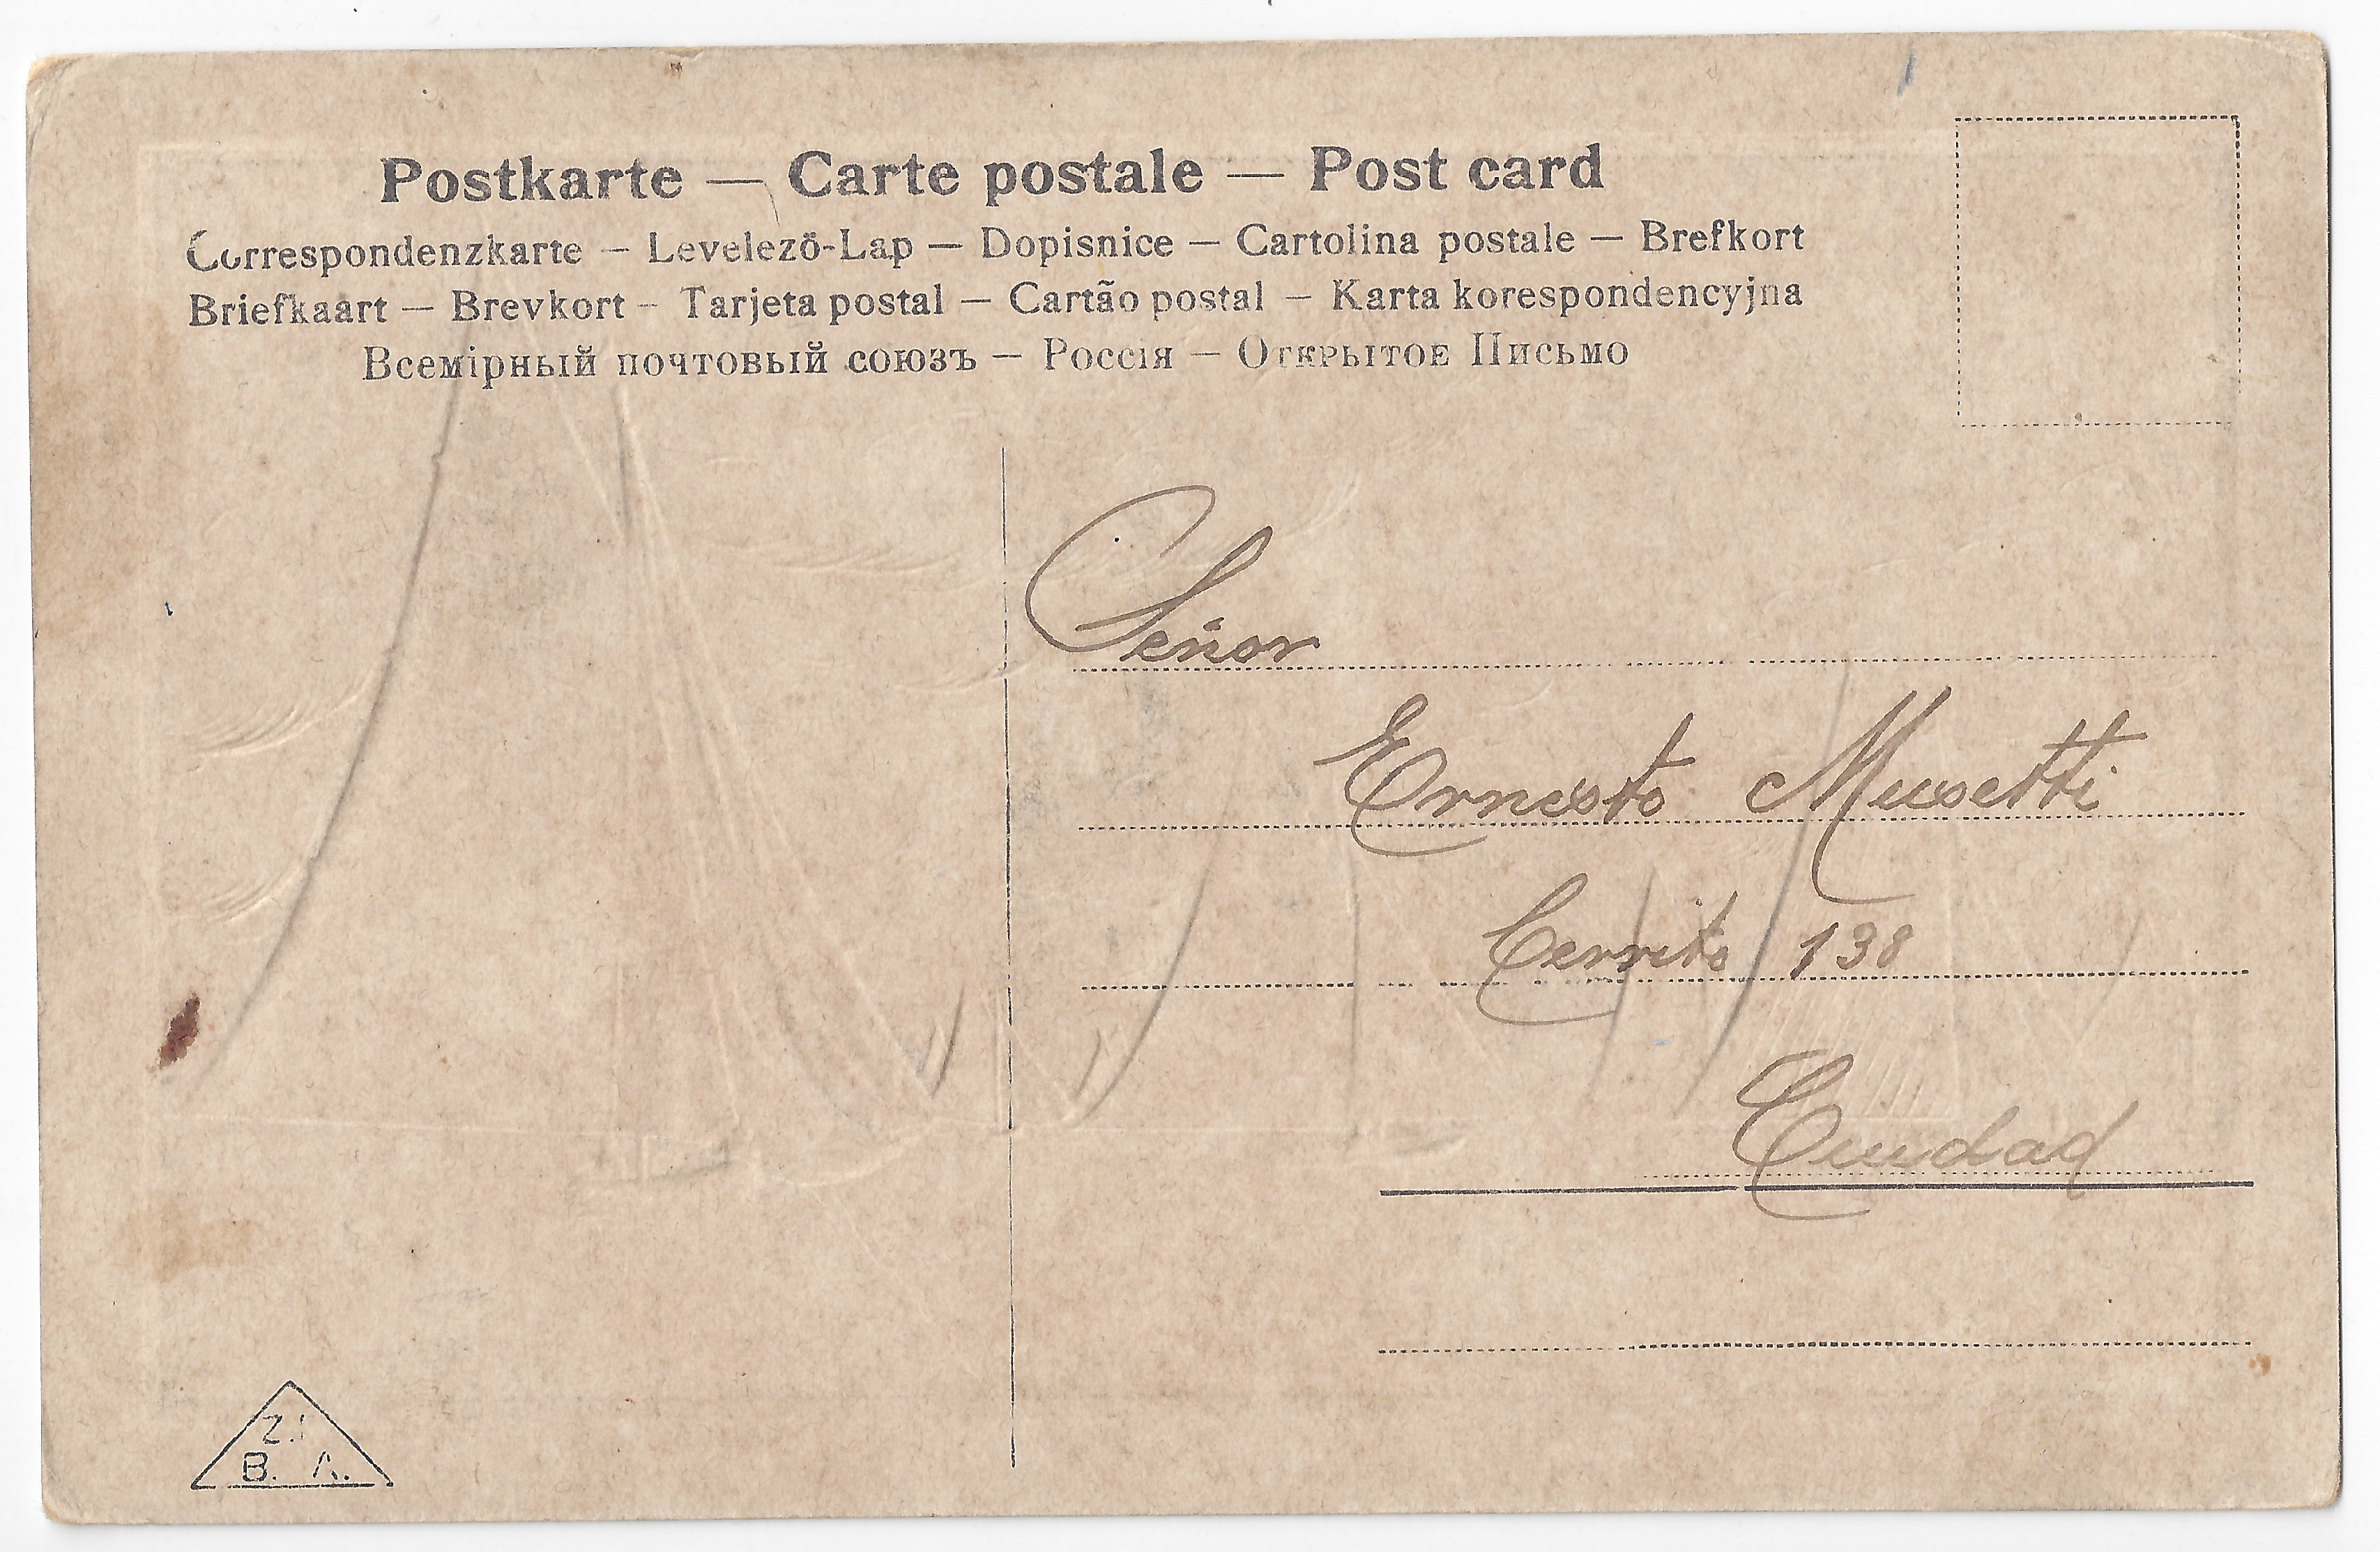 Postkarte — Carte postale — Post card
Correspondenzkarte — Levelezö-Lap — Dopisnice — Cartolina postale — Brefkort
Briefkaart — Brevkort — Tarjeta postal — Cartão postal — Karta korespondencyjna
Всемірный почтовый союзъ — Россія — Открытое Письмо
Señor
Ernesto Musetti
Cerrito 138
Ciudad
B. A.